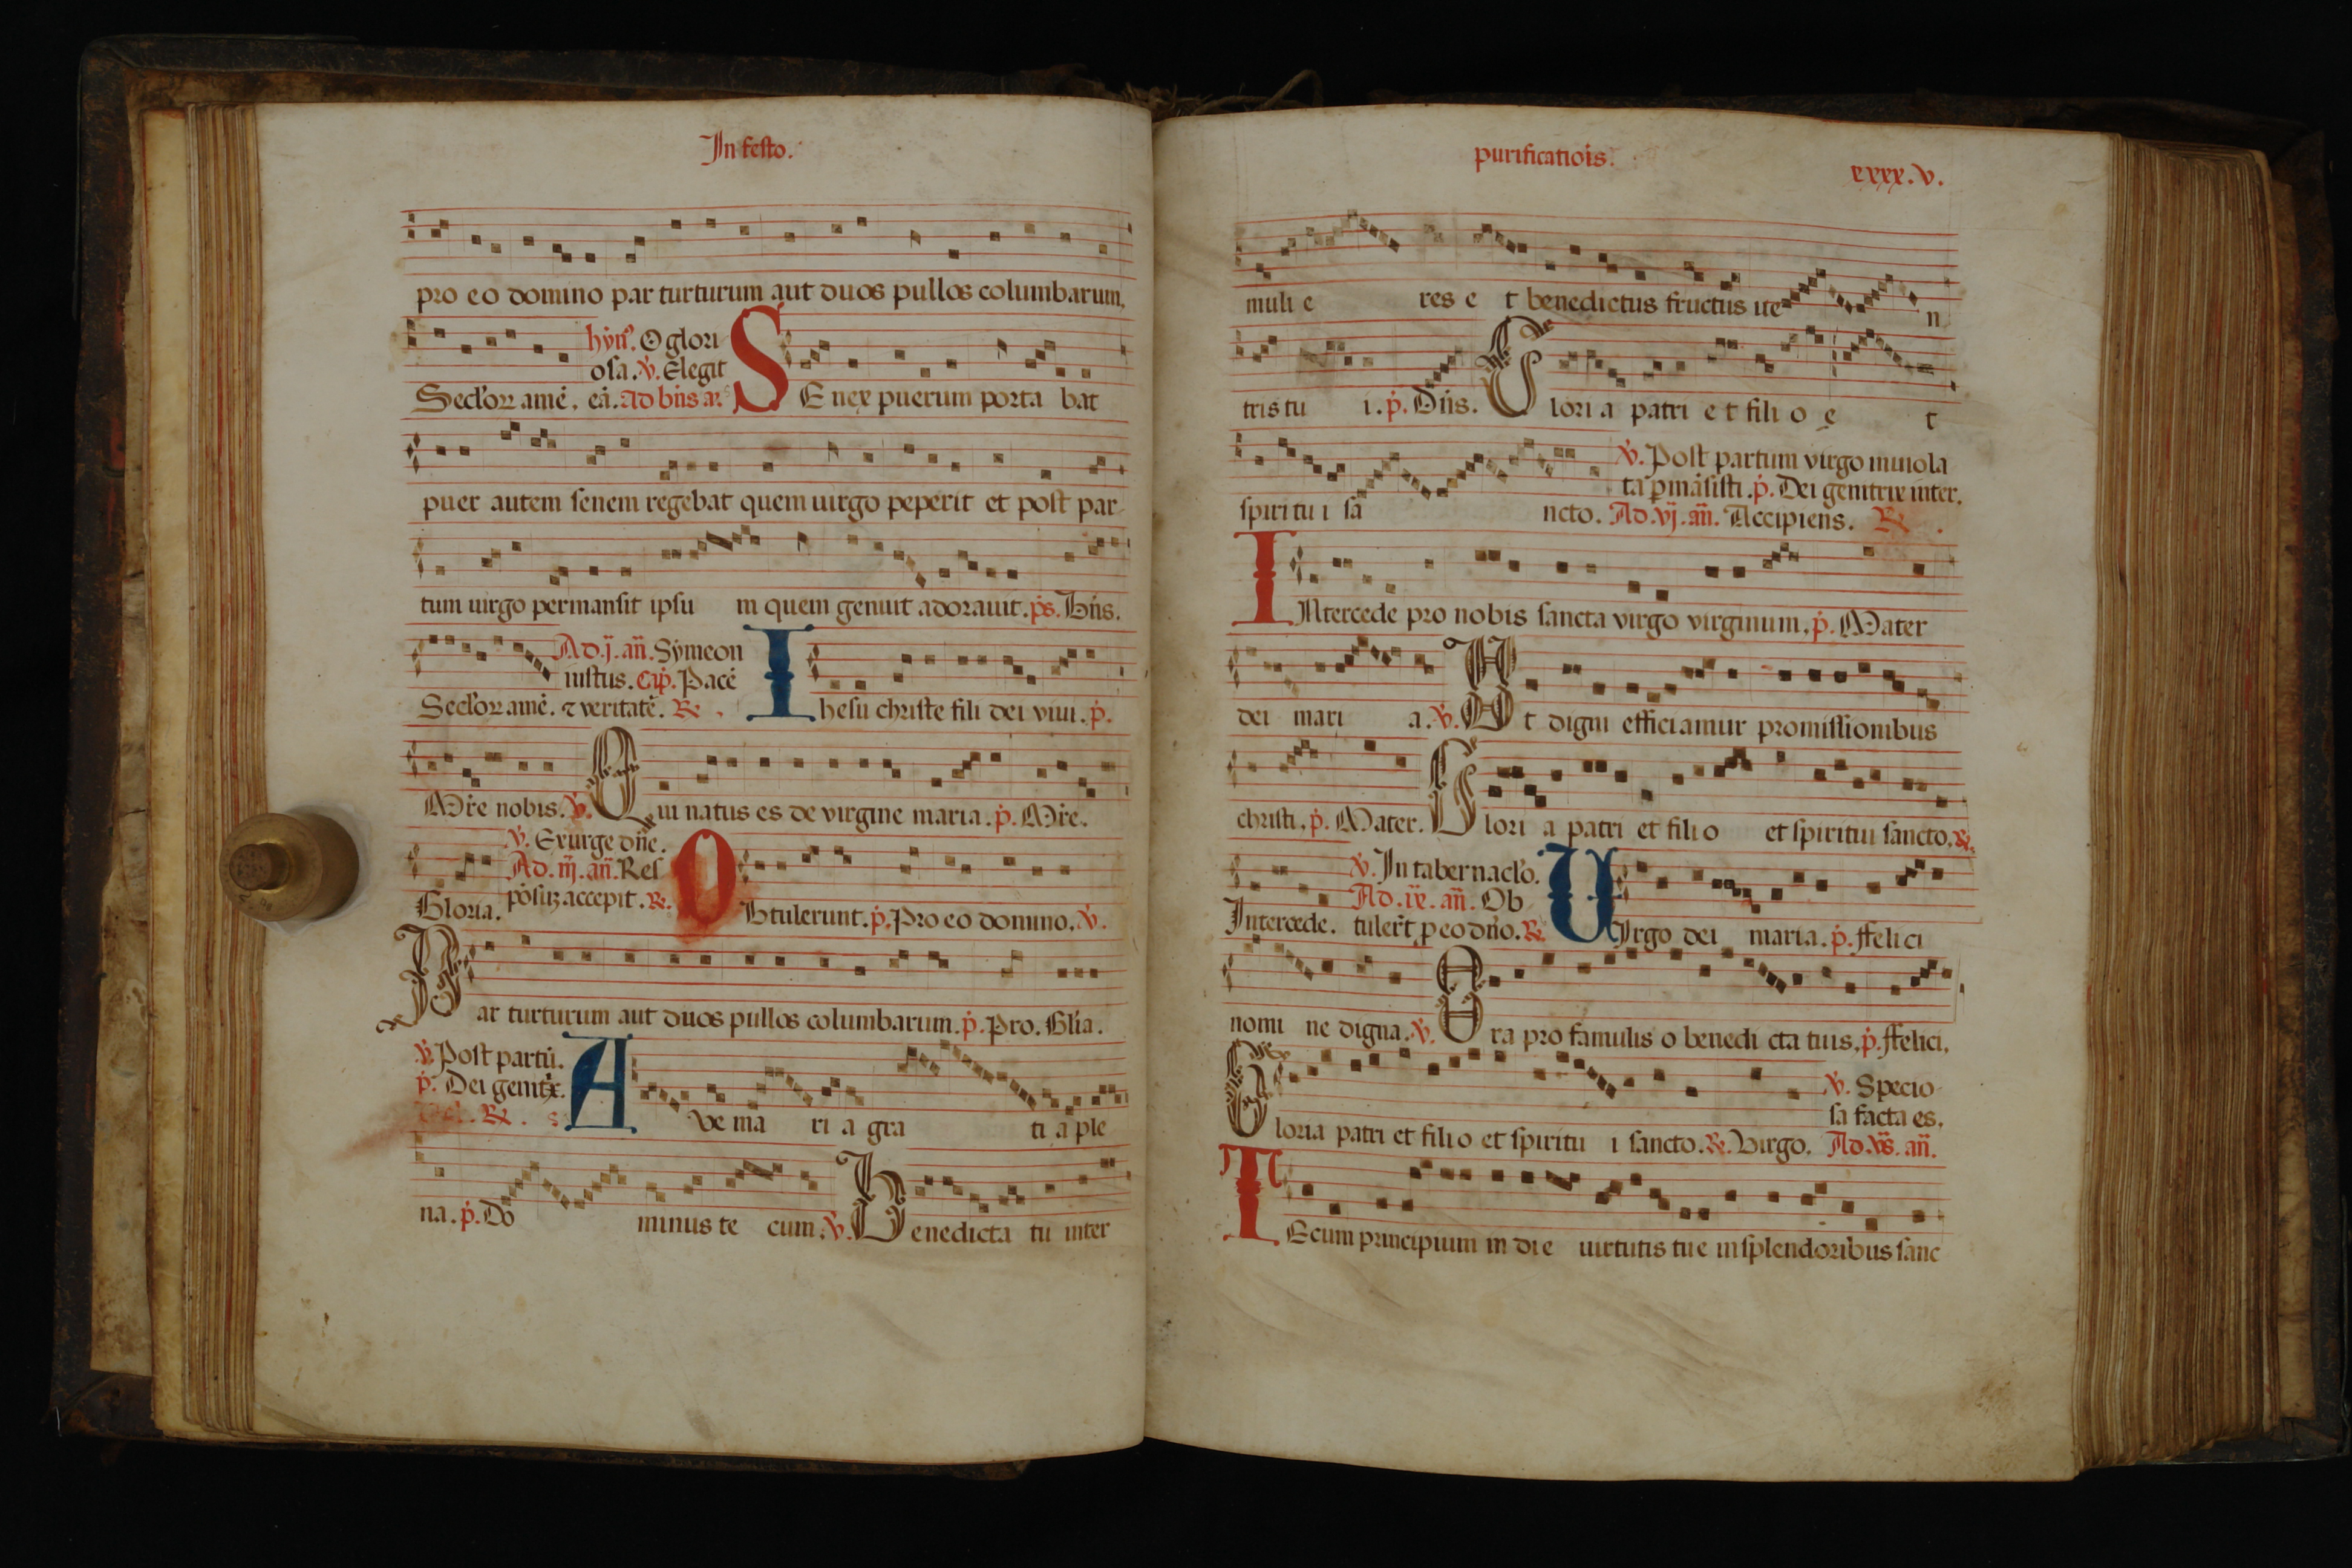 In festo.
pro eo domino par turturum aut duos pullos columbarum,
hyn̄. O glori
osa. v̇. Elegit
Seclor̄ amē. eā. Ad bn̄s añ. SEnex puerum porta bat
puer autem senem regebat quem uirgo peperit et post par
tum uirgo permansit ipsu m quem genuit adorauit. ps. Bn̄s.
Ad. j. añ. Symeon
iustus. Cap̄. Pacē
Seclor̄ amē. ⁊ veritatē. ℞. Ihesu christe fili dei viui. ṗ.
Mr̄e nobis. v̇. Qui natus es de virgine maria. ṗ. Mr̄e.
v̇. Exurge dn̄e.
Ad. iij. añ. Res
Gloria. ponsuꝫ accepit. ℞. OBtulerunt. ṗ. Pro eo domino. v̇.
Par turturum aut duos pullos columbarum. ṗ. Pro. Glīa.
v̇. Post partū.
ṗ. Dei genitx̄.
℞. Ave ma ri a gra ti a ple
na. ṗ. Do minus te cum. v̇. Benedicta tu inter
purificatiōis.
xxxx. v.
muli e res e t benedictus fructus ue n
tris tu i. ṗ. Dn̄s. Glori a patri e t fili o e t
v̇. Post partum virgo inuiola
ta ꝑmāsisti. ṗ. Dei genitrix inter.
spiri tu i sā ncto. Ad. vj. añ. Accipiens. ℞.
INtercede pro nobis sancta virgo virginum. ṗ. Mater
dei mari a. v̇. Ut digni efficiamur promissionibus
christi. ṗ. Mater. Glori a patri et fili o et spiritui sancto. ℞.
v̇. In tabernaclo.
Ad. ix. añ. Ob
Intercede. tuler̄t ꝑ eo dn̄o. ℞. VIrgo dei maria. ṗ. ffelici
nomi ne digna. v̇. Ora pro famulis o benedi cta tuis. ṗ. ffelici.
v̇. Specio
sa facta es.
Gloria patri et fili o et spiritu i sancto. ℞. Virgo. Ad. vs̄. añ.
TEcum principium in die uirtutis tue in splendoribus sanc